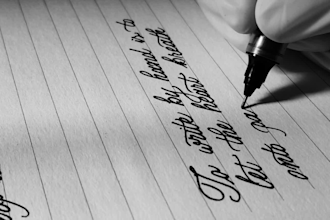 To write by hand is to
let the heart breath
and